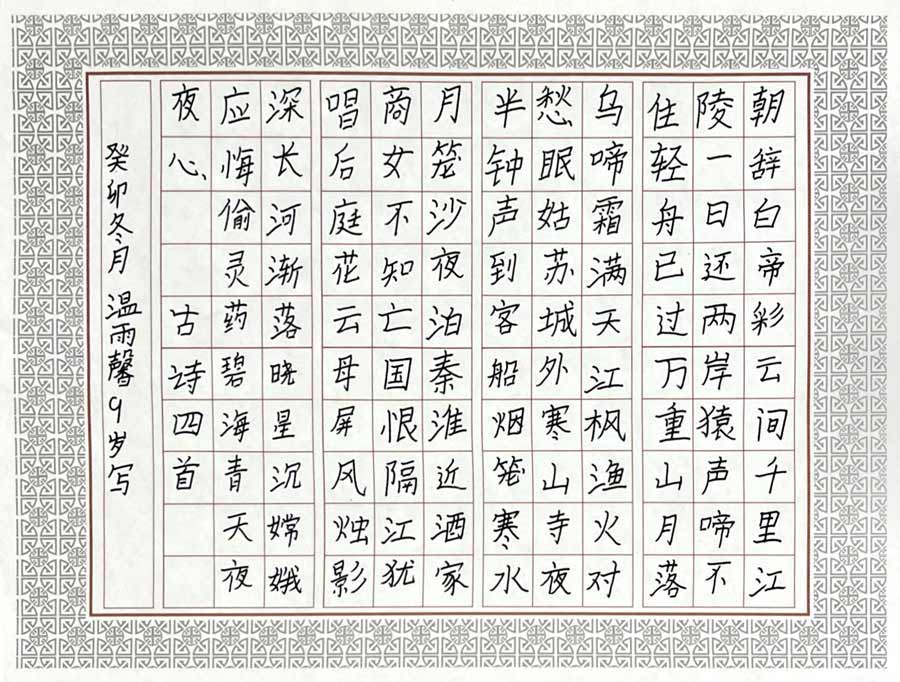 朝辞白帝彩云间千里江
陵一日还两岸猿声啼不
住轻舟已过万重山月落
乌啼霜满天江枫渔火对
愁眠姑苏城外寒山寺夜
半钟声到客船烟笼寒水
月笼沙夜泊秦淮近酒家
商女不知亡国恨隔江犹
唱后庭花云母屏风烛影
深长河渐落晓星沉嫦娥
应悔偷灵药碧海青天夜
夜心 古诗四首
癸卯冬月 温雨馨9岁写